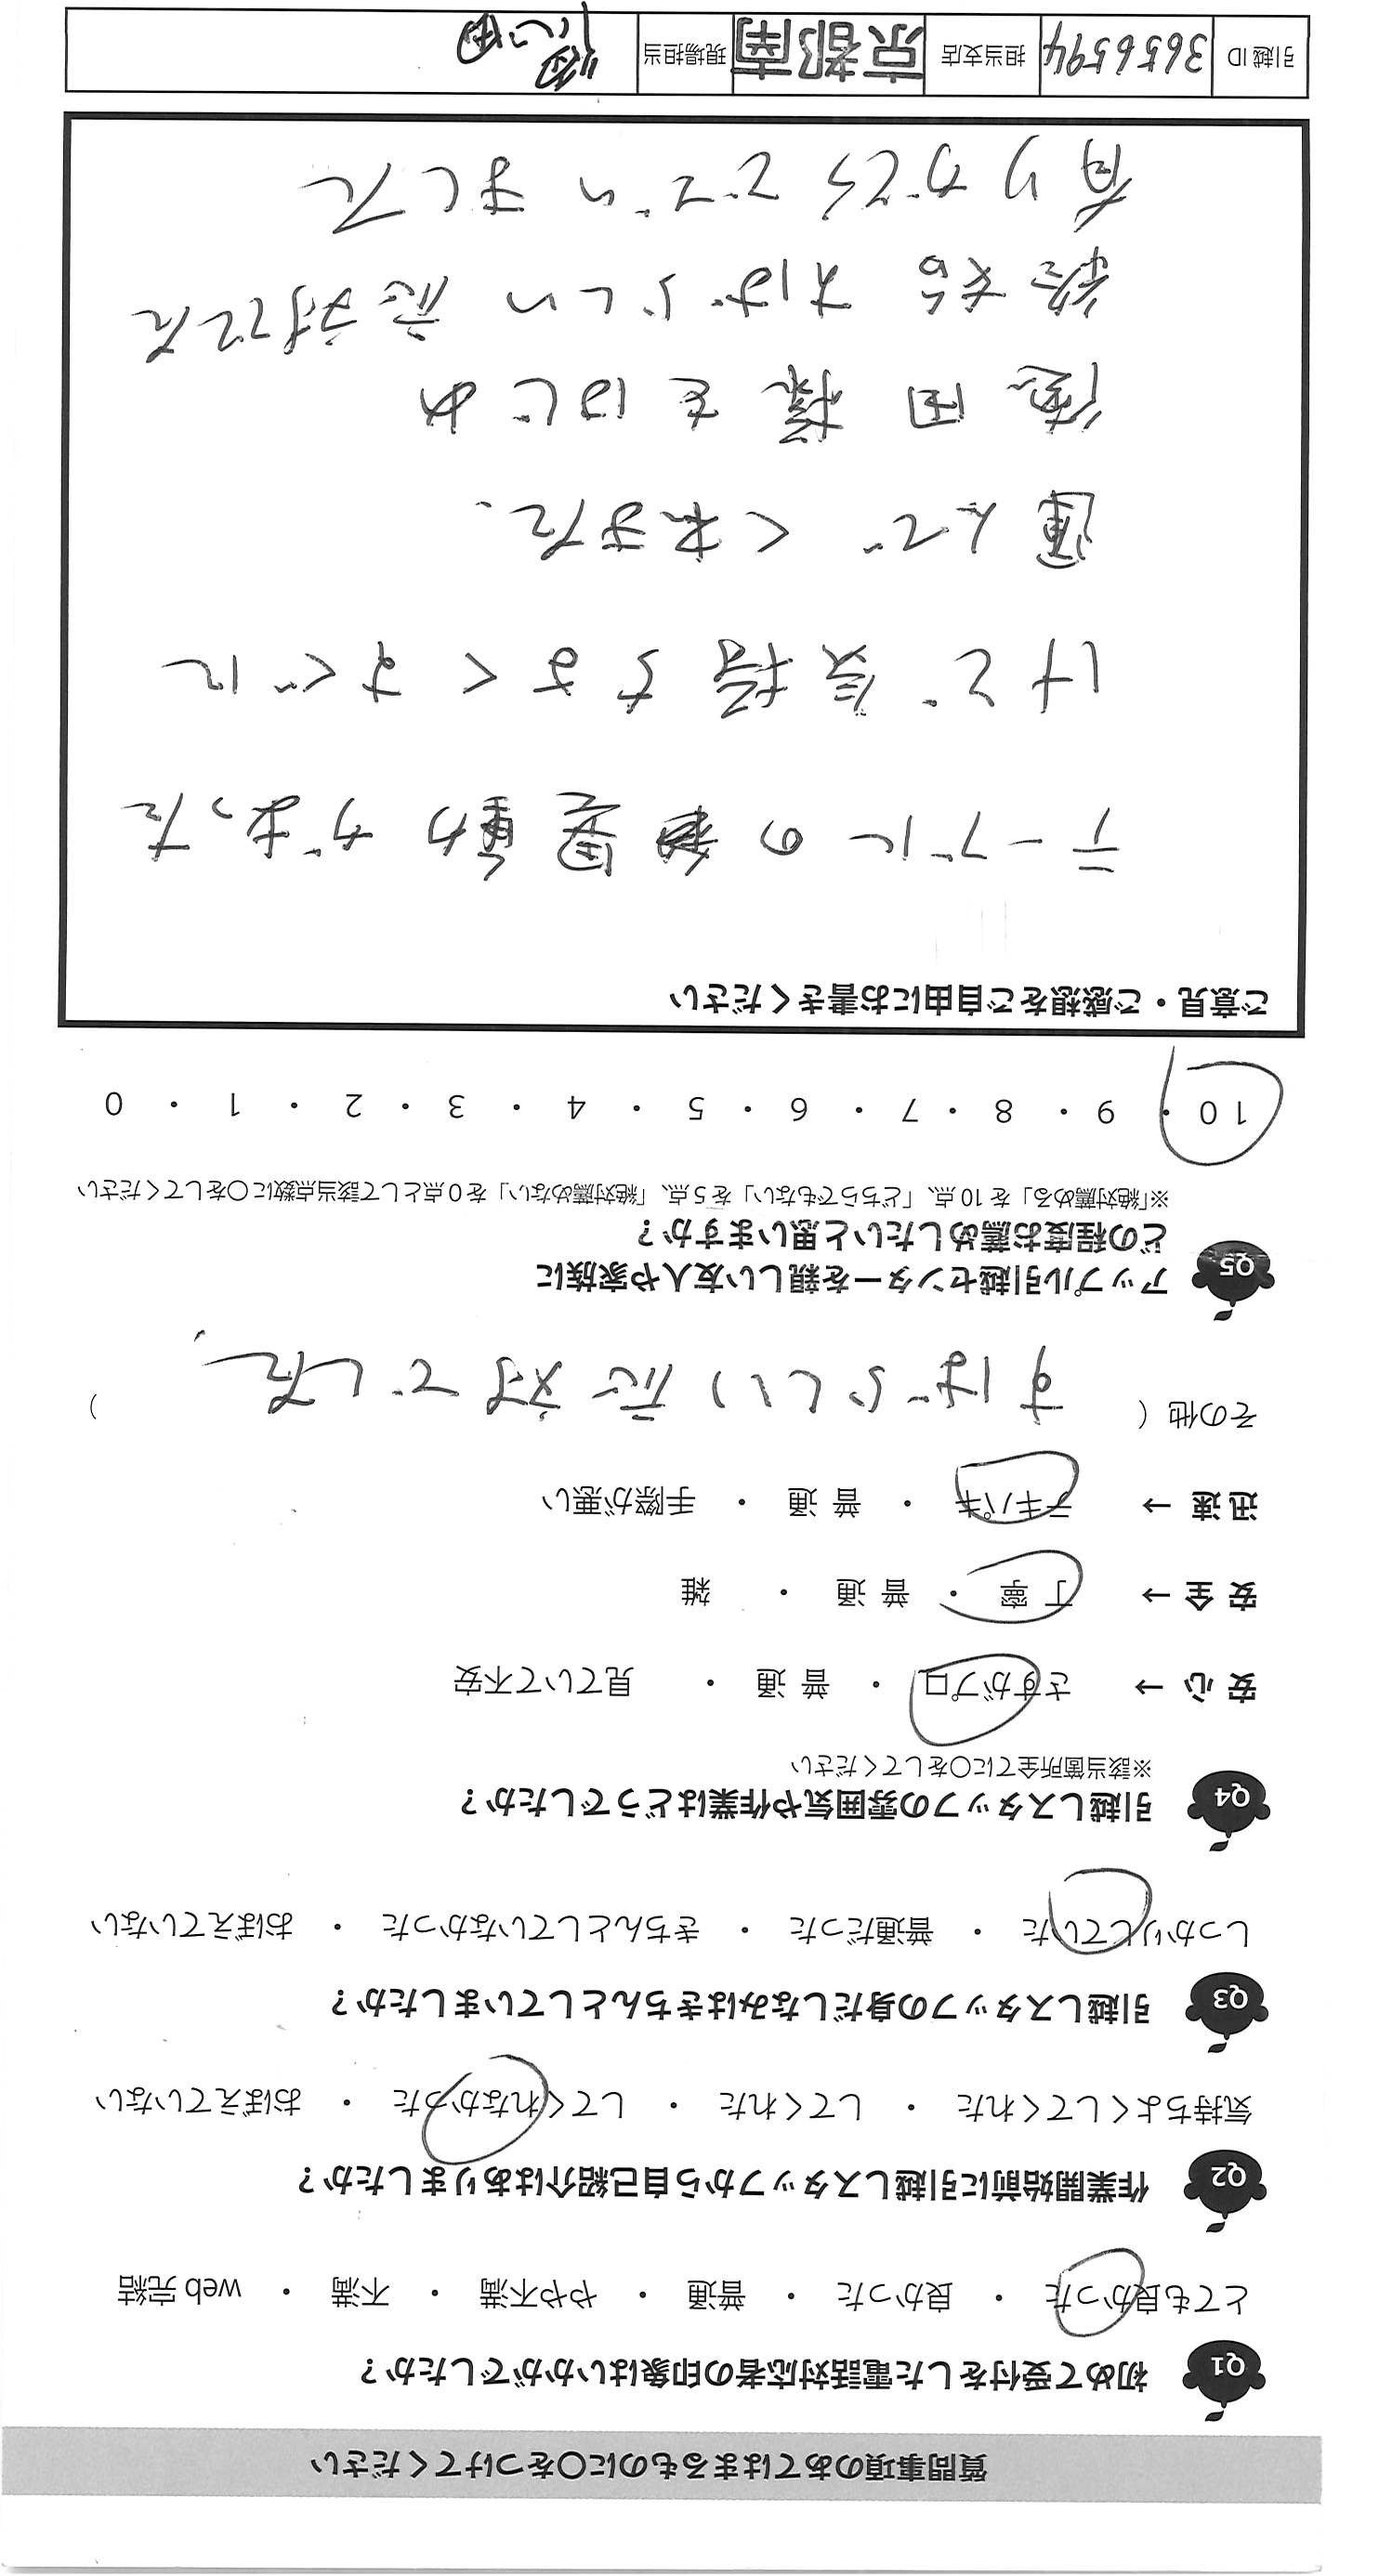 質問事項のあてはまるものに〇をつけてください
Q1 初めて受付をした電話対応者の印象はいかがでしたか？
とても良かった ・ 良かった ・ 普通 ・ やや不満 ・ 不満 ・ web完結
Q2 作業開始前に引越しスタッフから自己紹介はありましたか？
気持ちよくしてくれた ・ してくれた ・ してくれなかった ・ おぼえていない
Q3 引越しスタッフの身だしなみはきちんとしていましたか？
しっかりしていた ・ 普通だった ・ きちんとしていなかった ・ おぼえていない
Q4 引越しスタッフの雰囲気や作業はどうでしたか？
※該当箇所全てに〇をしてください
安心 → さすがプロ ・ 普通 ・ 見ていて不安
安全 → 丁寧 ・ 普通 ・ 雑
迅速 → テキパキ ・ 普通 ・ 手際が悪い
その他（ すばらしい応対でした。 ）
Q5 アップル引越センターを親しい友人や家族に
どの程度お薦めしたいと思いますか？
※「絶対薦める」を10点、「どちらでもない」を5点、「絶対薦めない」を0点として該当点数に〇をしてください
10 ・ 9 ・ 8 ・ 7 ・ 6 ・ 5 ・ 4 ・ 3 ・ 2 ・ 1 ・ 0
ご意見・ご感想をご自由にお書きください
テーブルの 置動かあった
けど気持ちよくすぐに
運んでくれました.
徳田様をはじめ
終始すばらしい応対でした
有りがとうございました
引越ID 3656594 担当支店 京都南 現場担当 徳田